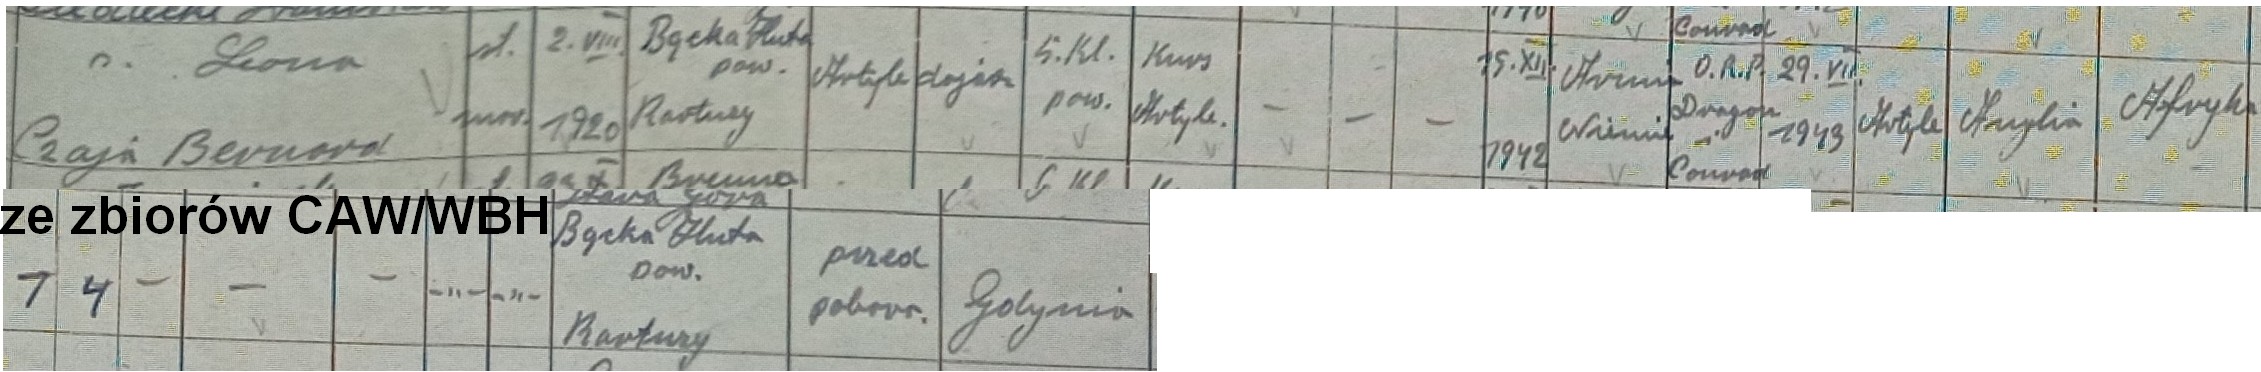 s. Leona
Czaja Bernard
st.
mar.
2. VIII.
1920
Bącka Huta
pow.
Kartuzy
Artyle
5. Kl.
pow.
Kurs
Artyle.
-
-
-
15. XII.
1942
Armii
Niemie
Conrad
O.R.P.
Dragon
-"-
Conrad
29. VII.
1943
Artyle
Anglia
Afryka
Brenno
ze zbiorów CAW/WBH
Bącka Huta
pow.
Kartuzy
7
4
-
-
-
-"-
-"-
przed
poboro.
Gdynia